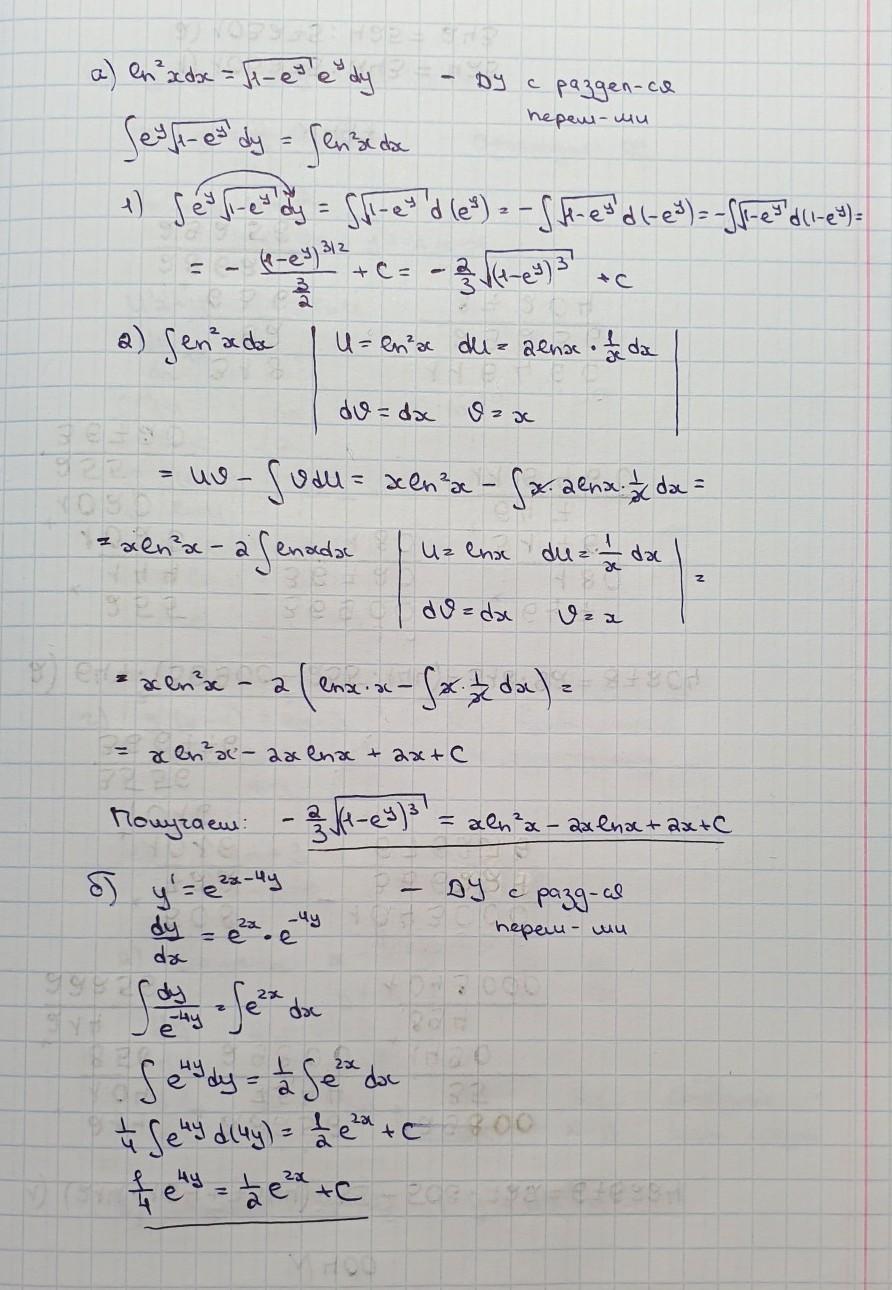 а) ln²x dx = √(1-e^y) e^y dy — ДУ с раздел-ся
перем-ми
∫e^y √(1-e^y) dy = ∫ln²x dx
1) ∫e^y √(1-e^y) dy = ∫√(1-e^y) d(e^y) = -∫√(1-e^y) d(-e^y) = -∫√(1-e^y) d(1-e^y) =
= - (1-e^y)^(3/2) / (3/2) + C = - 2/3 √((1-e^y)^3) + C
2) ∫ln²x dx | U = ln²x dU = 2lnx · 1/x dx |
| dϑ = dx ϑ = x |
= Uϑ - ∫ϑdU = x ln²x - ∫x · 2lnx · 1/x dx =
= x ln²x - 2∫lnx dx | U = lnx dU = 1/x dx | =
| dϑ = dx ϑ = x |
= x ln²x - 2(lnx · x - ∫x · 1/x dx) =
= x ln²x - 2x lnx + 2x + C
Получаем: - 2/3 √((1-e^y)^3) = x ln²x - 2x lnx + 2x + C
б) y' = e^(2x-4y) — ДУ с разд-ся
перем-ми
dy/dx = e^(2x) · e^(-4y)
∫ dy/e^(-4y) = ∫e^(2x) dx
∫e^(4y) dy = 1/2 ∫e^(2x) dx
1/4 ∫e^(4y) d(4y) = 1/2 e^(2x) + C
1/4 e^(4y) = 1/2 e^(2x) + C